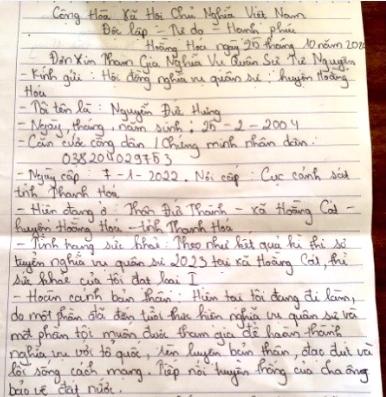 Cộng Hòa Xã Hội Chủ Nghĩa Việt Nam
Độc lập - Tự do - Hạnh phúc
Hoằng Hóa ngày 25 tháng 10 năm
Đơn Xin Tham Gia Nghĩa Vụ Quân Sự Tự Nguyện
- Kính gửi : Hội đồng nghĩa vụ quân sự : huyện Hoằng
Hóa
- Tôi tên là : Nguyễn Đức Hưng
- Ngày, tháng, năm sinh : 25 - 2 - 2004
- Căn cước công dân / Chứng minh nhân dân :
038204029753
- Ngày cấp : 7 - 1 - 2022. Nơi cấp : Cục cảnh sát
tỉnh Thanh Hoá
- Hiện đang ở : Thôn Đức Thành - xã Hoằng Cát -
huyện Hoằng Hoá - tỉnh Thanh Hoá
- Tình trạng sức khoẻ : Theo như kết quả kì thi sơ
tuyển nghĩa vụ quân sự 2023 tại xã Hoằng Cát, thì
sức khoẻ của tôi đạt loại I
- Hoàn cảnh bản thân : Hiện tại tôi đang đi làm,
do một phần đã đến tuổi thực hiện nghĩa vụ quân sự và
một phần tôi muốn được tham gia để hoàn thành
nghĩa vụ với tổ quốc, rèn luyện bản thân, đạo đức và
lối sống cách mạng. Tiếp nối truyền thống của cha ông
bảo vệ đất nước.